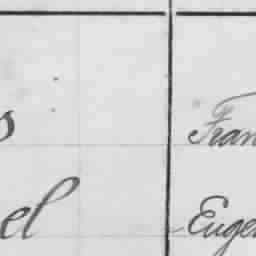 s Fran
el Eugen